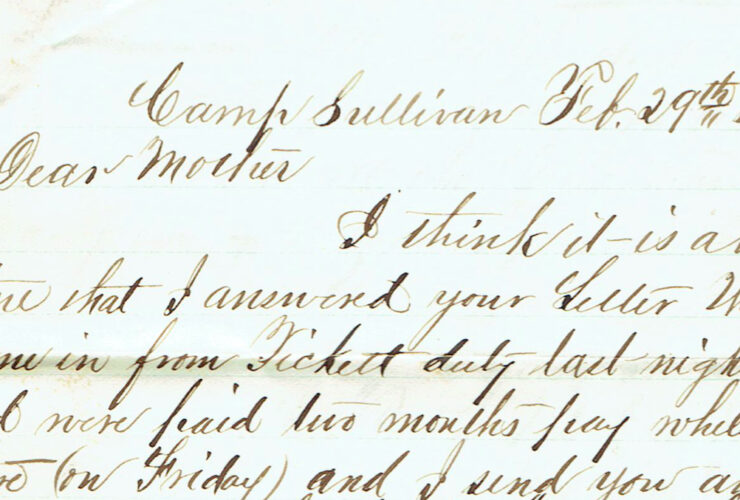 Camp Sullivan Feb. 29th
Dear Mother
I think it is a
that I answered your Letter
in from Pickett duty last night
were paid two months pay
(on Friday) and I send you